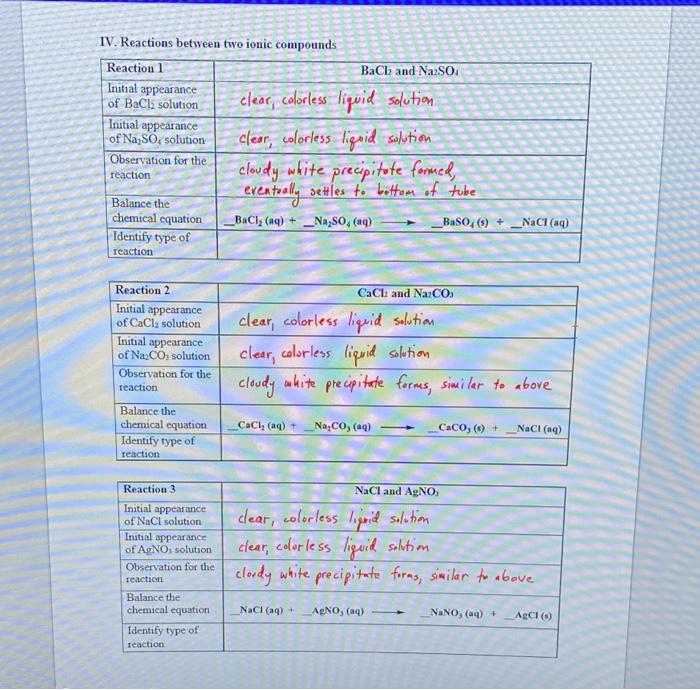 IV. Reactions between two ionic compounds
Reaction 1 BaCl₂ and Na₂SO₄
Initial appearance
of BaCl₂ solution
clear, colorless liquid solution
Initial appearance
of Na₂SO₄ solution
clear, colorless liquid solution
Observation for the
reaction
cloudy white precipitate formed,
eventually settles to bottom of tube
Balance the
chemical equation
__BaCl₂ (aq) + __Na₂SO₄ (aq) ⟶ __BaSO₄ (s) + __NaCl (aq)
Identify type of
reaction
Reaction 2 CaCl₂ and Na₂CO₃
Initial appearance
of CaCl₂ solution
clear, colorless liquid solution
Initial appearance
of Na₂CO₃ solution
clear, colorless liquid solution
Observation for the
reaction
cloudy white precipitate forms, similar to above
Balance the
chemical equation
__CaCl₂ (aq) + __Na₂CO₃ (aq) ⟶ __CaCO₃ (s) + __NaCl (aq)
Identify type of
reaction
Reaction 3 NaCl and AgNO₃
Initial appearance
of NaCl solution
clear, colorless liquid solution
Initial appearance
of AgNO₃ solution
clear, colorless liquid solution
Observation for the
reaction
cloudy white precipitate forms, similar to above
Balance the
chemical equation
__NaCl (aq) + __AgNO₃ (aq) ⟶ __NaNO₃ (aq) + __AgCl (s)
Identify type of
reaction